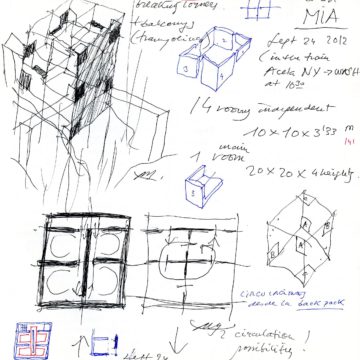 breaking corners
+ balconys
(trampolines)
MIA
Sept 24 2012
(in the train
Acela NY → WASH
at 10 30
14 rooms independent
10 x 10 x 3'33 m
1 main room
20 x 20 x 4 heights.
3
3
A
A
circulaciones
desde la back pack
circulation!
possibilities!